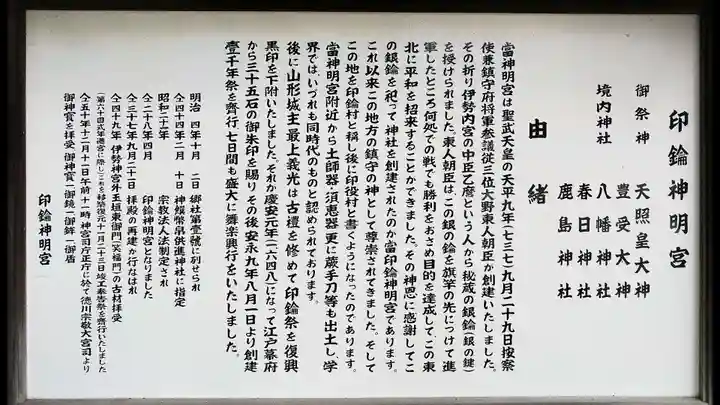 印鑰神明宮
御祭神 天照皇大神
豊受大神
境内神社 八幡神社
春日神社
鹿島神社
由緒
當神明宮は聖武天皇の天平九年(七三七)九月二十九日按察
使兼鎮守府将軍参議従三位大野東人朝臣が創建いたしました。
その折り伊勢内宮の中臣乙麿という人から秘蔵の銀鑰(銀の鍵)
を授けられました。東人朝臣は、この銀の鑰を旗竿の先につけて進
軍したところ何処での戦でも勝利をおさめ目的を達成して、この東
北に平和を招来することができました。その神恩に感謝してこ
の銀鑰を祀って神社を創建されたのが當印鑰神明宮であります。
これ以来この地方の鎮守の神として尊崇されてきました。そして
この地を印鑰村と称し後に印役村と書くようになったのであります。
當神明宮附近から土師器・須恵器更に蕨手刀等も出土し、学
界では、いづれも同時代のものと認められております。
後に山形城主最上義光は古檀を修めて印鑰祭を復興
黒印を下附いたしました。それが慶安元年(一六四八)になって江戸幕府
から三十五石の御朱印を賜りその後安永九年八月一日より創建
壹千年祭を齊行七日間も盛大に舞楽興行をいたしました。
明治四年十月二日 郷社第壹號に列せられ
仝四十四年二月十日 神饌幣帛供進神社に指定
昭和二十一年 宗教法人法制定され
仝二十八年四月 印鑰神明宮となりました
仝三十七年九月二十日 拝殿の再建が行なはれ
仝四十九年 伊勢神宮外玉垣東御門(笑福門)の古材拝受
(第六十回式年遷宮に際し)これを移築復元十一月二十三日竣工奉告祭を齊行いたしました
仝五十年十二月十一日午前十一時 神宮司庁正庁に於て徳川宗敬大宮司より
御神寶を拝受 御神寶一御鏡 二御鉾 一御盾
印鑰神明宮